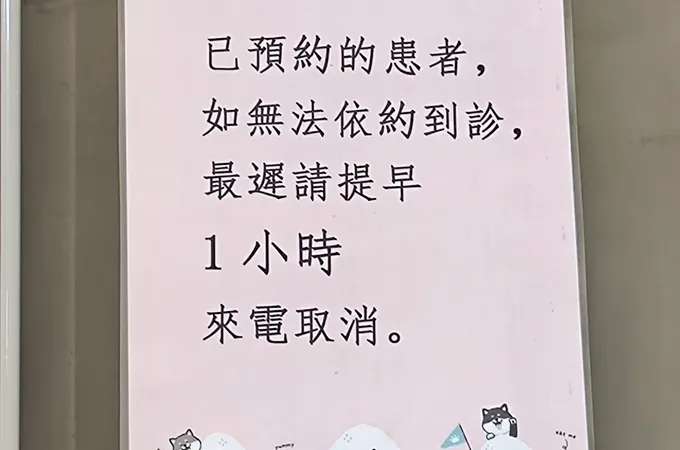 已預約的患者，
如無法依約到診，
最遲請提早
1小時
來電取消。
yummy
eat me